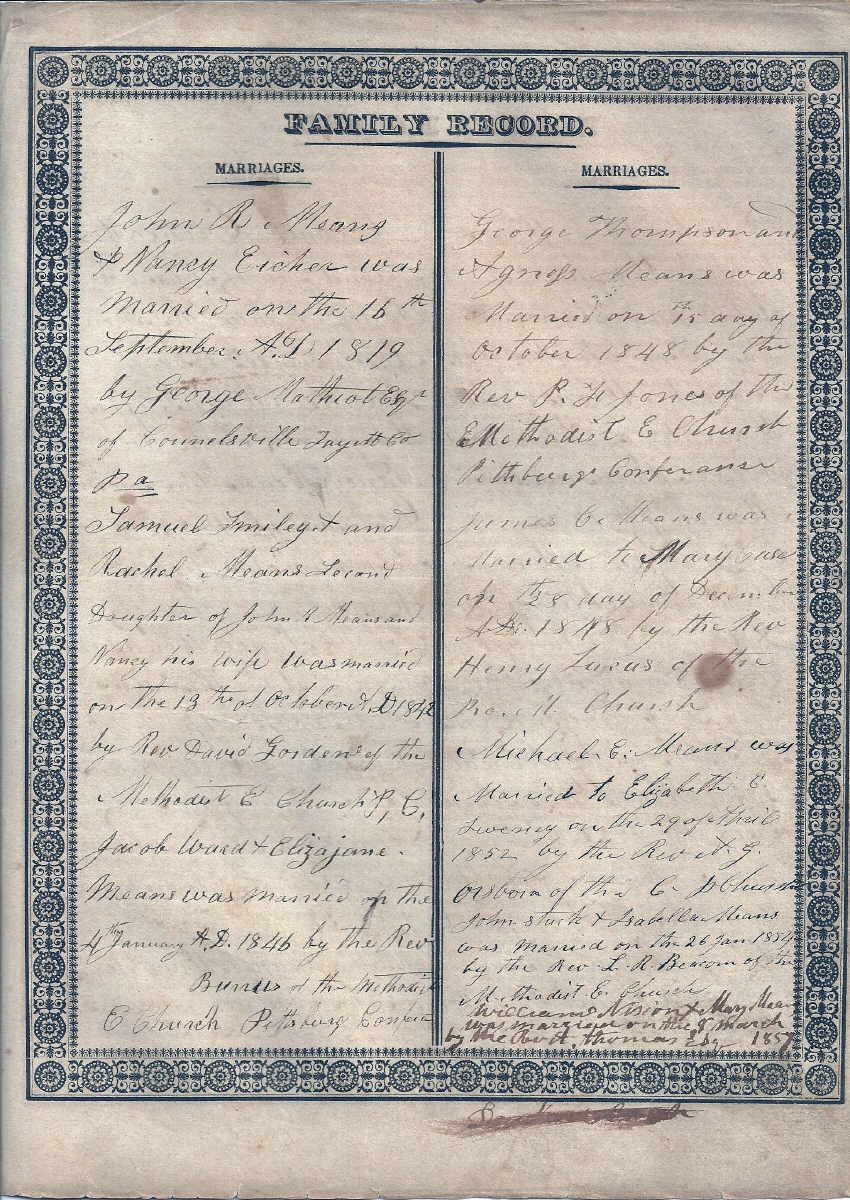 FAMILY RECORD.
MARRIAGES.
John R Means
& Nancy Eicher was
Married on the 16th
September A.D. 1819
by George Mathiot Esqr
of Counelsville Fayett Co
Pa
Samuel Smiley and
Rachel Means Second
Daughter of John R Means and
Nancy his wife was married
on the 13th of October A.D 1842
by Rev David Gordens of the
Methodist E Church P, C,
Jacob Ward & Elizajane
Means was married on the
4th January A.D. 1846 by the Rev
of the Methodist
E Church Pittsburg
MARRIAGES.
George Thompson and
Agness Means was
Married on 15 day of
October 1848 by the
Rev P. Jones of the
E Methodist E Church
Pittsburg Conferanse
James C Means was
Married to Mary
on 28 day of December
AD. 1848 by the Rev
Henry Lucas of the
Church
Michael E. Means was
Married to Elizabeth C
Sweney on the 29 of April
1852 by the Rev A. G.
Osborn of the C. P Church
John Stark & Isabella Means
was married on the 26 Jan 1854
by the Rev. L. R. Beacom of the
Methodist E. Church
William Nixon & Mary Means
was married on the 8 March
by the thomas Esq 1857